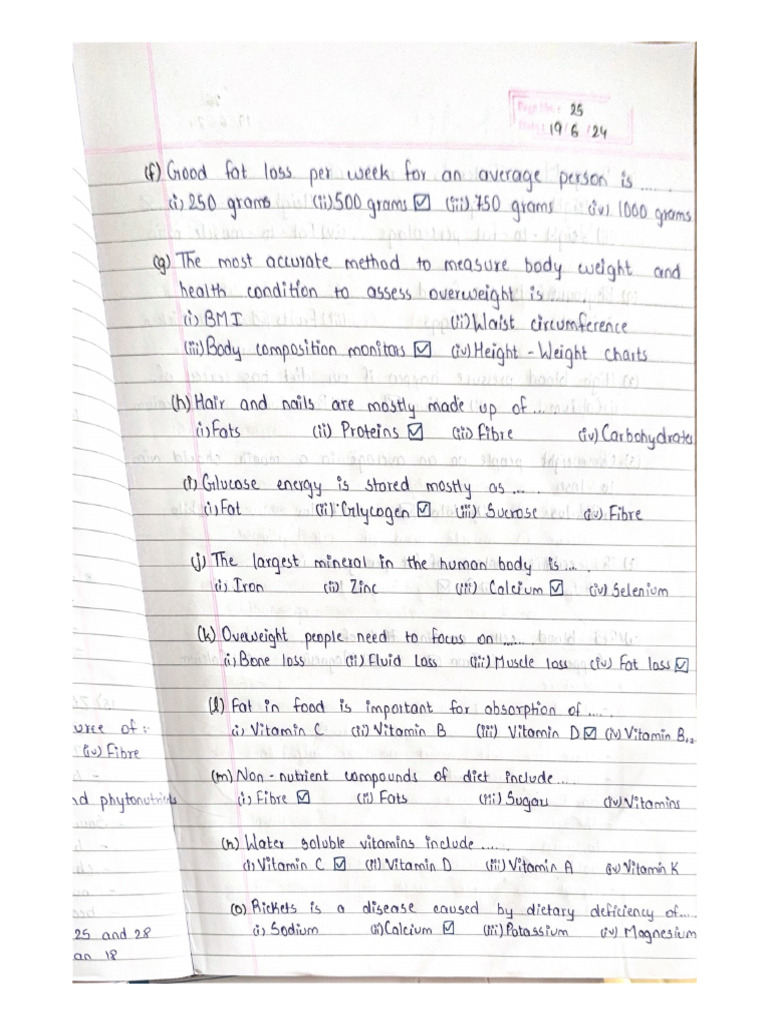 Page No.: 25
Date: 19/6/24
(f) Good fat loss per week for an average person is ......
(i) 250 grams (ii) 500 grams ☑ (iii) 750 grams (iv) 1000 grams
(g) The most accurate method to measure body weight and
health condition to assess overweight is ...
(i) BMI (ii) Waist circumference
(iii) Body composition monitors ☑ (iv) Height - Weight charts
(h) Hair and nails are mostly made up of ....
(i) Fats (ii) Proteins ☑ (iii) Fibre (iv) Carbohydrates
(i) Glucose energy is stored mostly as .....
(i) Fat (ii) Glycogen ☑ (iii) Sucrose (iv) Fibre
(j) The largest mineral in the human body is .....
(i) Iron (ii) Zinc (iii) Calcium ☑ (iv) Selenium
(k) Overweight people need to focus on .......
(i) Bone loss (ii) Fluid Loss (iii) Muscle loss (iv) Fat loss ☑
(l) Fat in food is important for absorption of ......
(i) Vitamin C (ii) Vitamin B (iii) Vitamin D ☑ (iv) Vitamin B12
(m) Non - nutrient compounds of diet include .....
(i) Fibre ☑ (ii) Fats (iii) Sugar (iv) Vitamins
(n) Water soluble vitamins include ......
(i) Vitamin C ☑ (ii) Vitamin D (iii) Vitamin A (iv) Vitamin K
(o) Rickets is a disease caused by dietary deficiency of .....
(i) Sodium (ii) Calcium ☑ (iii) Potassium (iv) Magnesium
of :-
(iv) Fibre
25 and 28
18